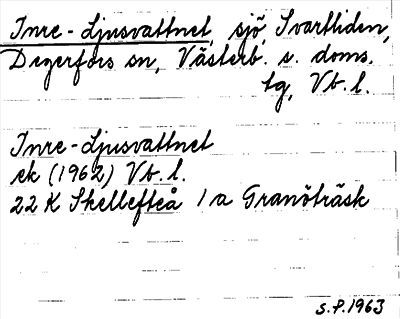 Inre-Ljusvattnet, sjö Svartliden,
Degerfors sn, Västerb. s. doms.
tg, Vb. l.
Inre-Ljusvattnet
ek (1962) Vb. l.
22 K Skellefteå 1 a Granöträsk
S.P. 1963